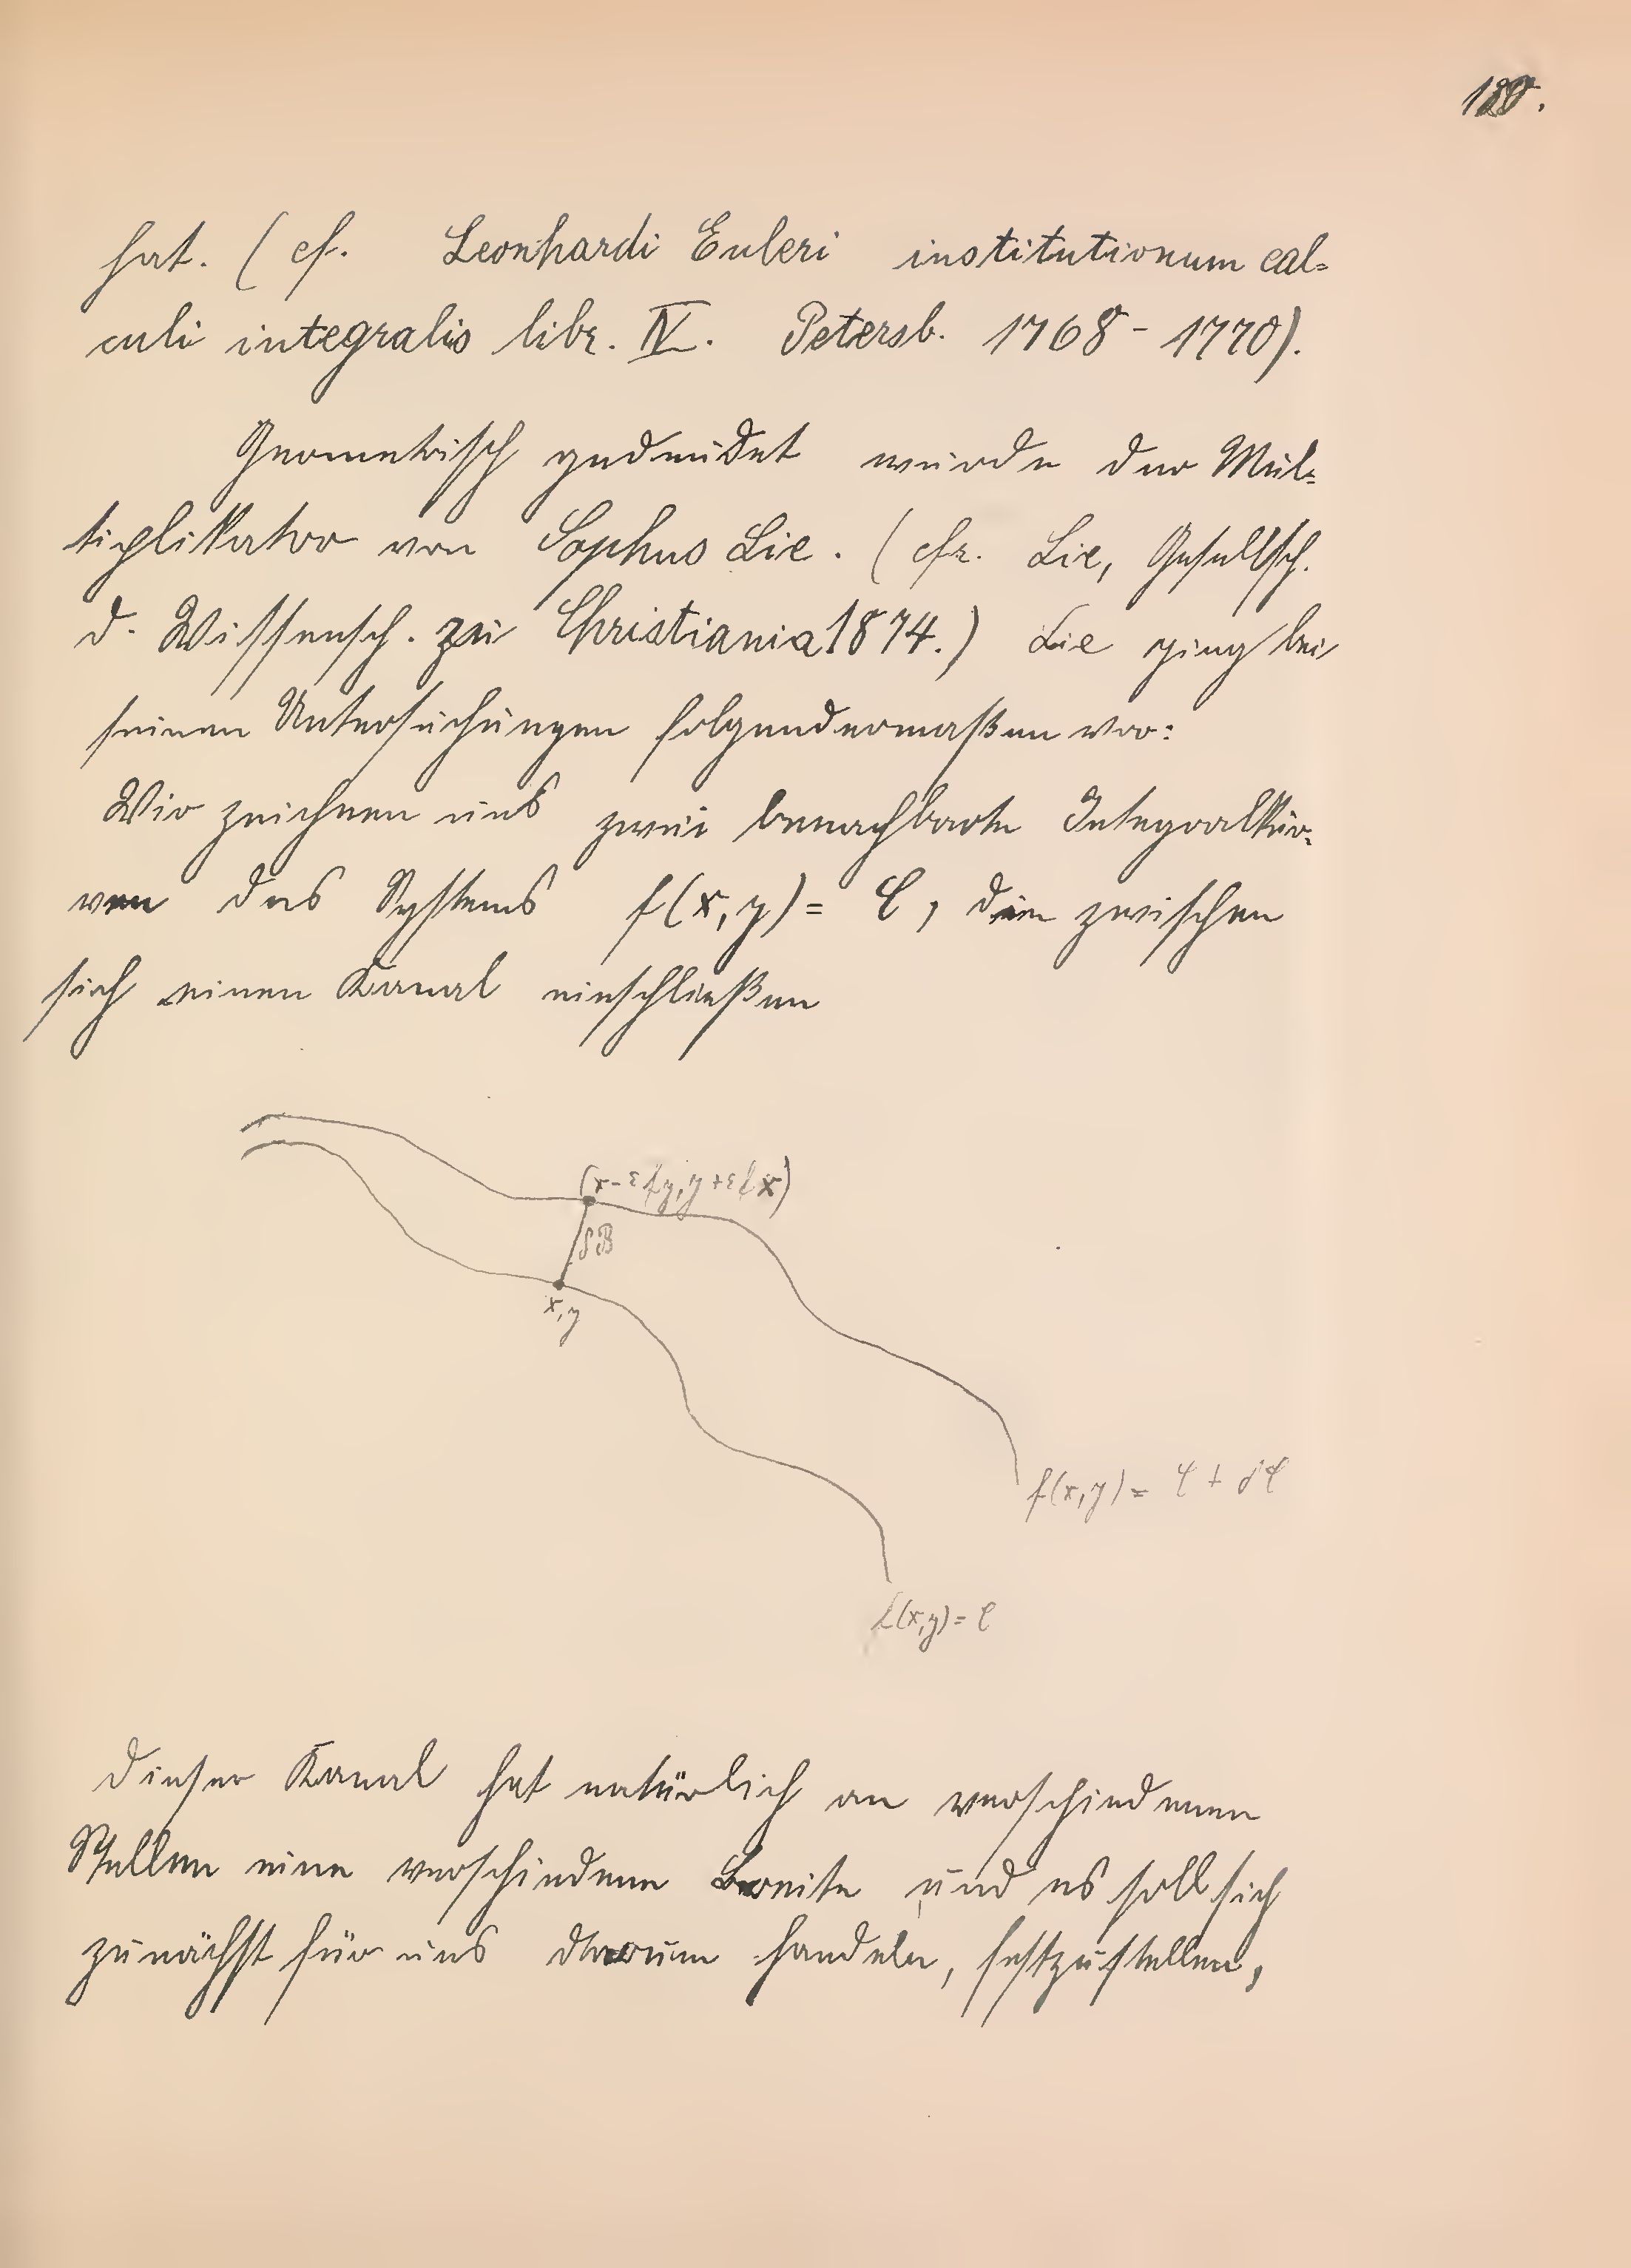 180.
hat. (cf. Leonhardi Euleri institutionum cal=
culi integralis libr. IV. Petersb. 1768 - 1770).
Geometrisch gedeutet wurde der Mul=
tiplikator von Sophus Lie. (cfr. Lie, Gesellsch.
d. Wissensch. zu Christiania 1874.) Lie ging bei
seinen Untersuchungen folgendermaßen vor:
Wir zeichnen uns zwei benachbarte Integralkur=
ven des Systems f(x,y) = C, die zwischen
sich einen Kanal einschließen
(x-εfy, y+εfx)
δB
x,y
f(x,y) = C + δC
f(x,y) = C
Dieser Kanal hat natürlich an verschiedenen
Stellen eine verschiedene Breite und es soll sich
zunächst für uns darum handeln, festzustellen,